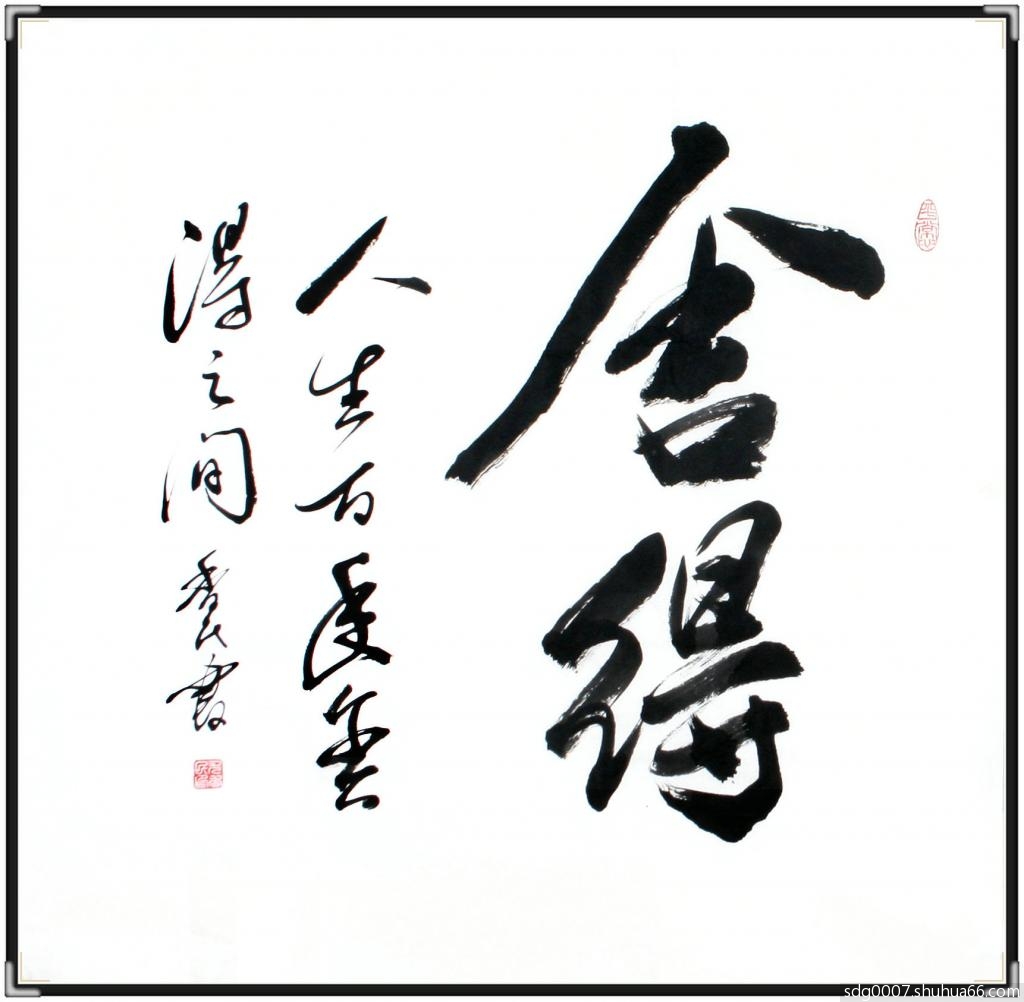 舍得
人生百年舍
得之间
sdq0007.shuhua66.com